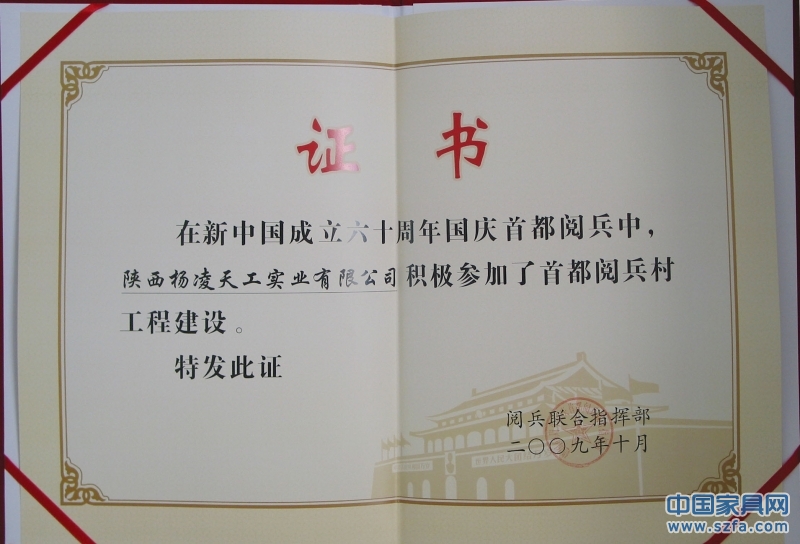 证书
在新中国成立六十周年国庆首都阅兵中，
陕西杨凌天工实业有限公司积极参加了首都阅兵村
工程建设。
特发此证
阅兵联合指挥部
二〇〇九年十月
中国家具网
www.szfa.com